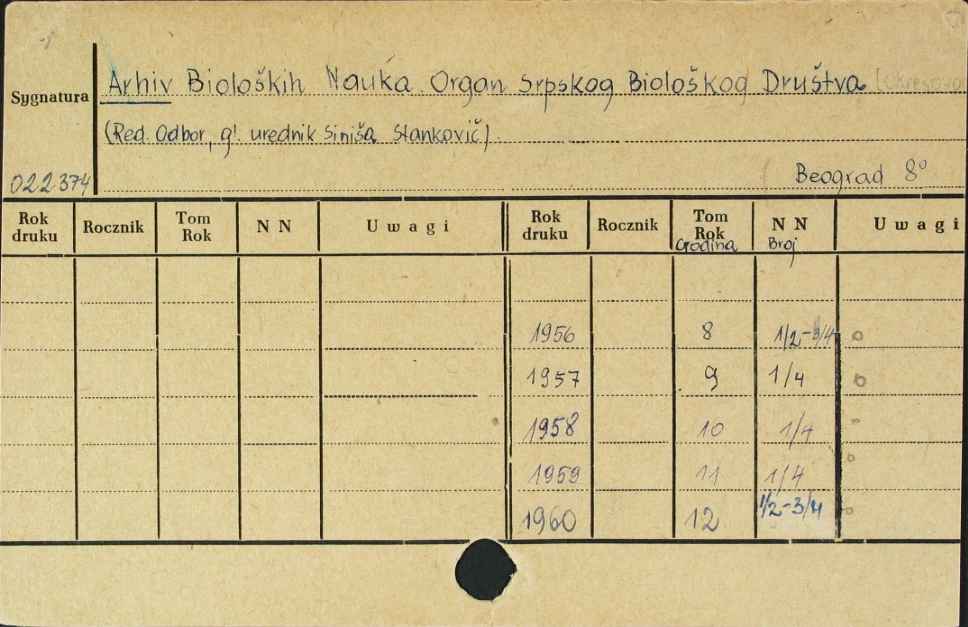 Sygnatura
022374
Arhiv Bioloških Nauka Organ Srpskog Biološkog Društva
(Red. Odbor, gl. urednik Siniša Stankovič).
Beograd 8°
Rok druku Rocznik Tom Rok N N Uwagi Rok druku Rocznik Tom Rok Godina N N Broj Uwagi
1956 8 1/2-3/4
1957 9 1/4
1958 10 1/4
1959 11 1/4
1960 12 1/2-3/4